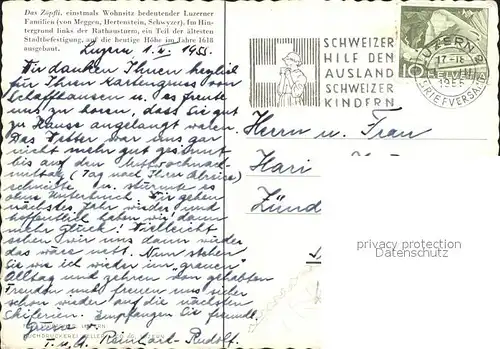 Das Zöpfli, einstmals Wohnsitz bedeutender Luzerner
Familien (von Meggen, Hertenstein, Schwyzer). Im Hin-
tergrund links der Rathausturm, ein Teil der ältesten
Stadtbefestigung, auf die heutige Höhe im Jahre 1618
ausgebaut.
Luzern 1.4.1955.
Wir danken Ihnen herzlich
für Ihren Kartengruss von
Schaffhausen u. es freute
uns zu hören, dass Sie gut
zu Hause angelangt waren.
Das Wetter war uns gar
nicht mehr gut gesinnt
bis auf den Mittwochnach-
mittag (Tag nach Ihrer Abreise)
schneite u. stürmte es
ohne Unterbruch. Wir gehen
nächstes Jahr wieder und
hoffentlich haben wir dann
mehr Glück! Vielleicht
sehen wir uns dann wieder,
das wäre nett. Nun stehen
wie ich wieder im "grauen"
Alltag und zehren von gehabten
Freuden und freuen uns sicher
schon wieder auf die nächsten
Skiferien. Empfangen Sie freundl.
Grüsse v.
Reinhart-Rudolf.
SCHWEIZER
HILF DEN
AUSLAND
SCHWEIZER
KINDERN
LUZERN
17-18
1955
BRIEFVERSAND
10
HELVETIA
Herrn u. Frau
Hari
Zünd
privacy protection
Datenschutz